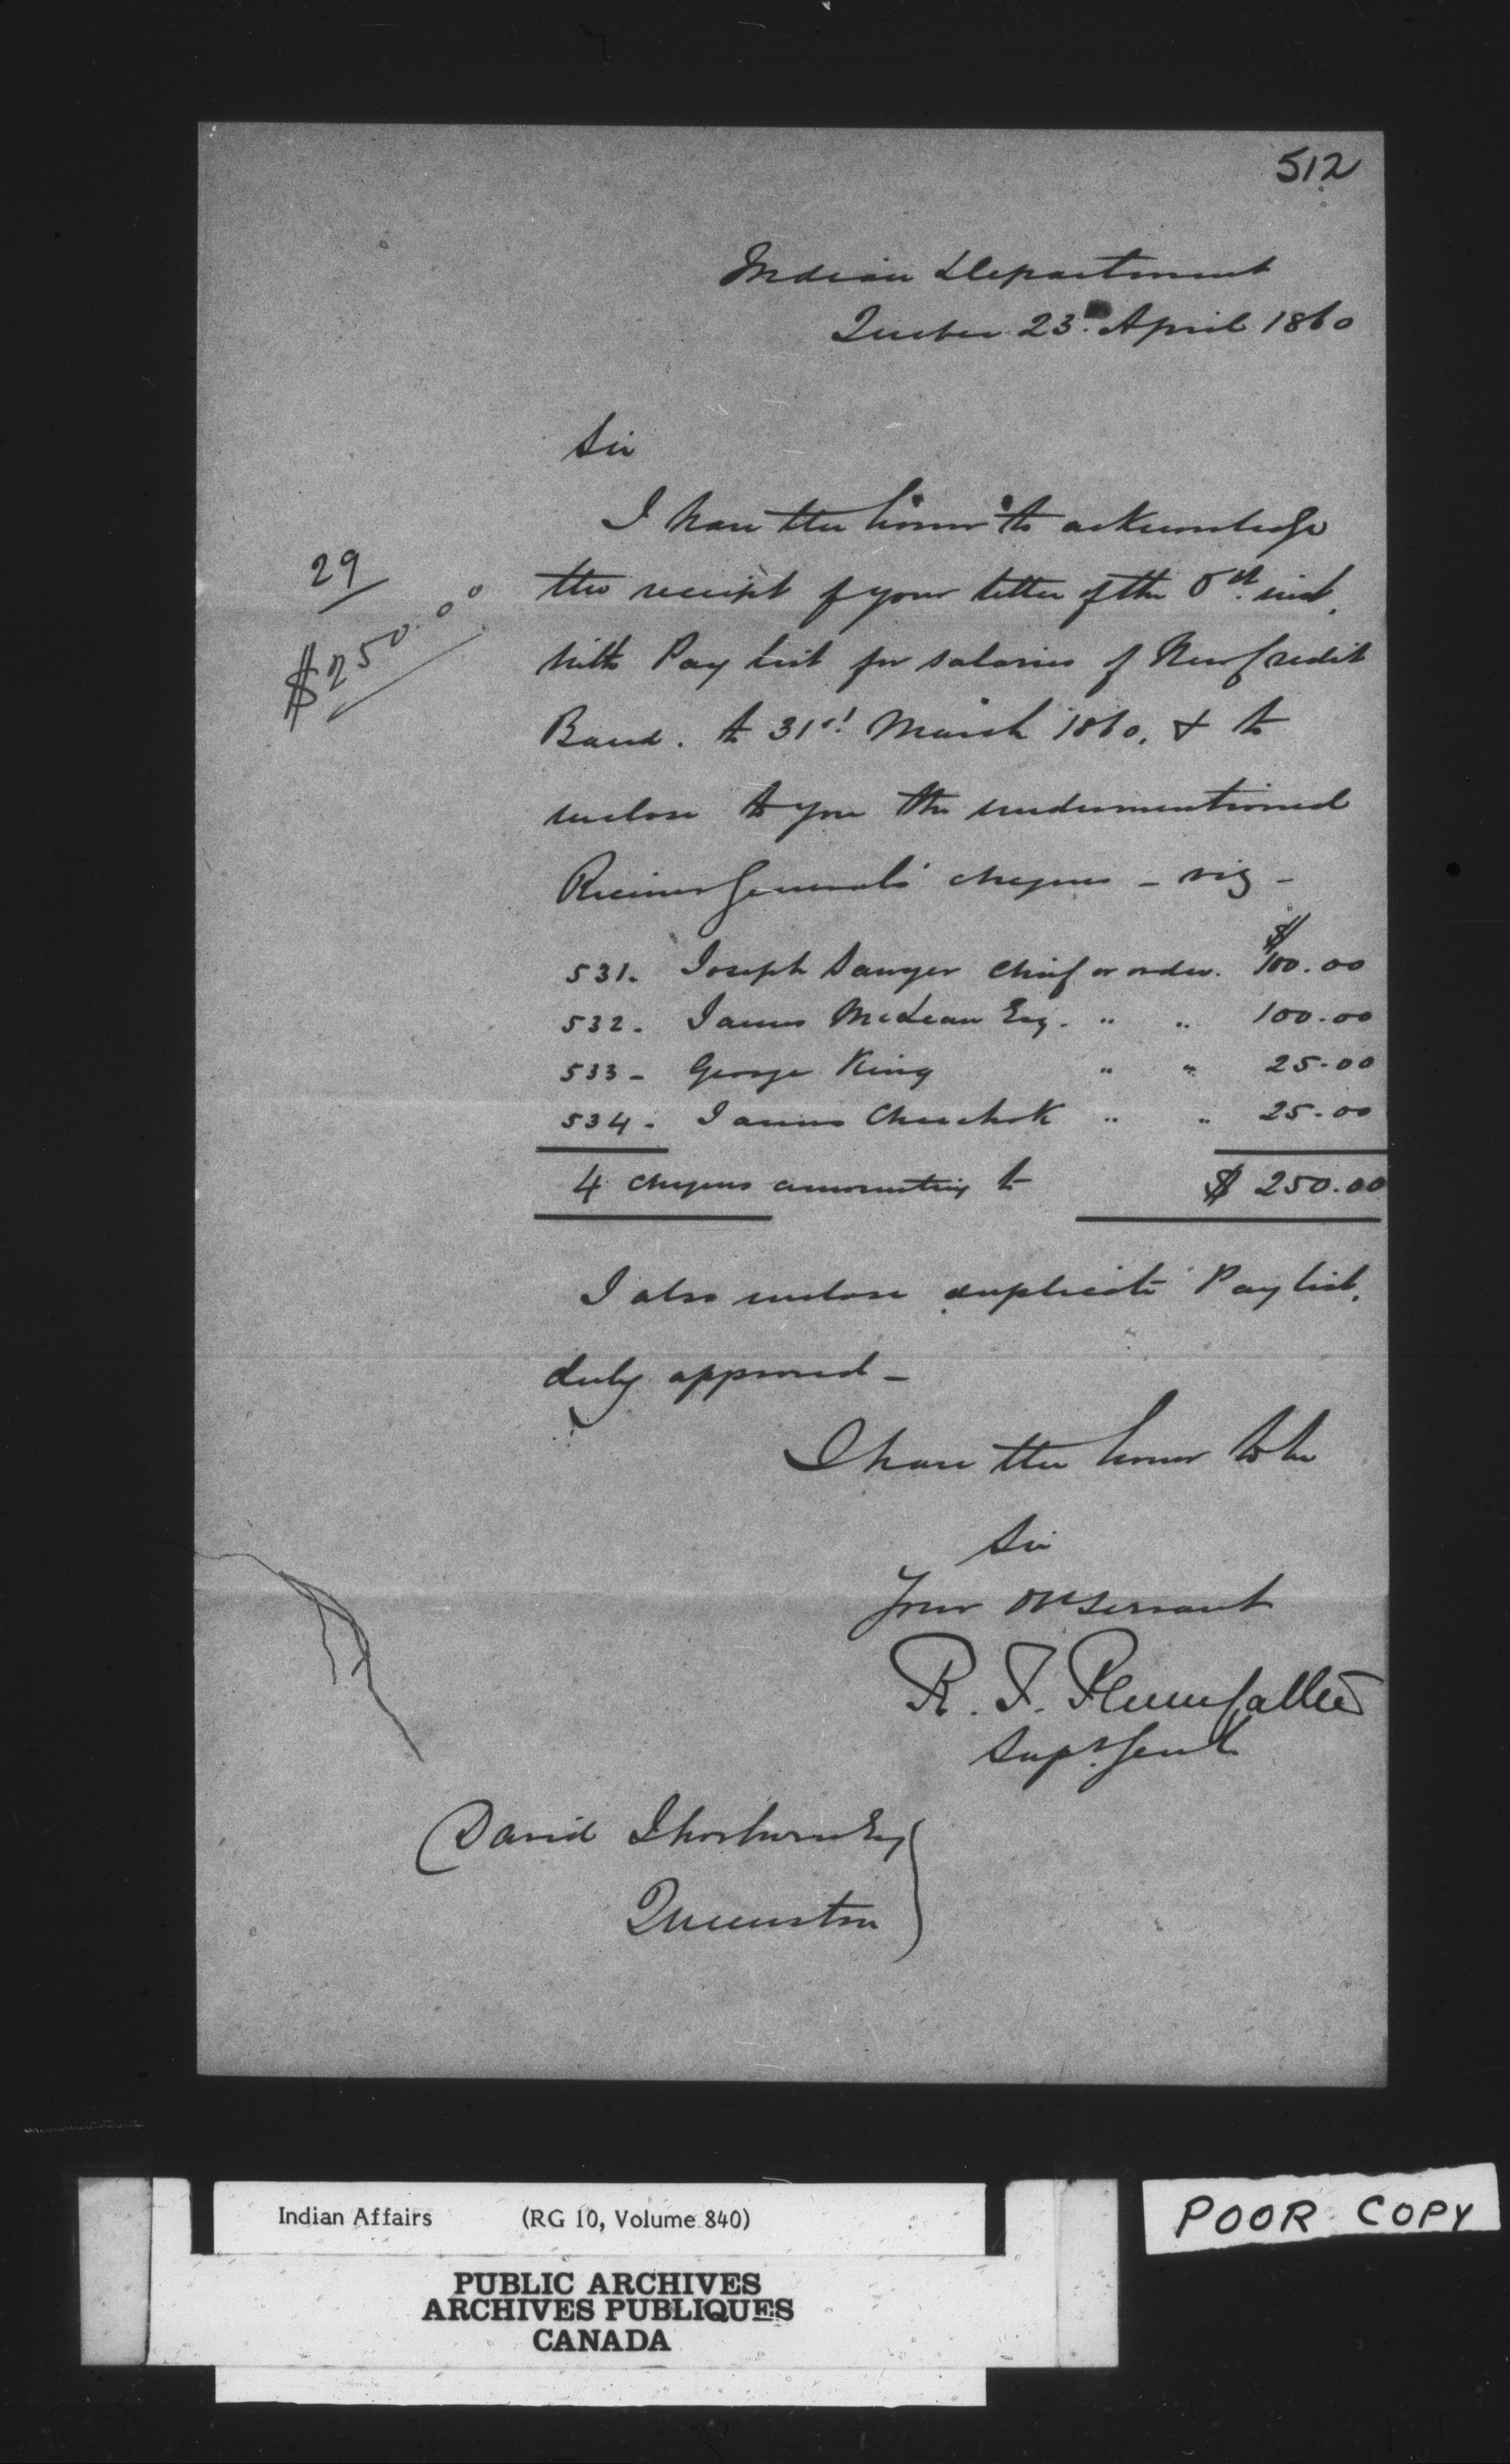 512
Indian Department
Quebec 23d. April 1860
Sir
I have the honor to acknowledge
the receipt of your letter of the 5th. inst.
with Pay list for salaries of New Credit
Band. to 31st March 1860, & to
enclose to you the undermentioned
Receiver General's cheques - viz -
29
$250.00
$
531. Joseph Sawyer Chief or order. 100.00
532. James McLean Esq. " " 100.00
533 - George King " " 25.00
534. James Chechok " " 25.00
4 cheques amounting to $ 250.00
I also enclose duplicate Pay list,
duly approved -
I have the honor to be
Sir
Your Ob Servant
R. T. Pennefather
Supt. Genl
David Thorburn Esq
Queenston
Indian Affairs (RG 10, Volume 840)
PUBLIC ARCHIVES
ARCHIVES PUBLIQUES
CANADA
POOR COPY